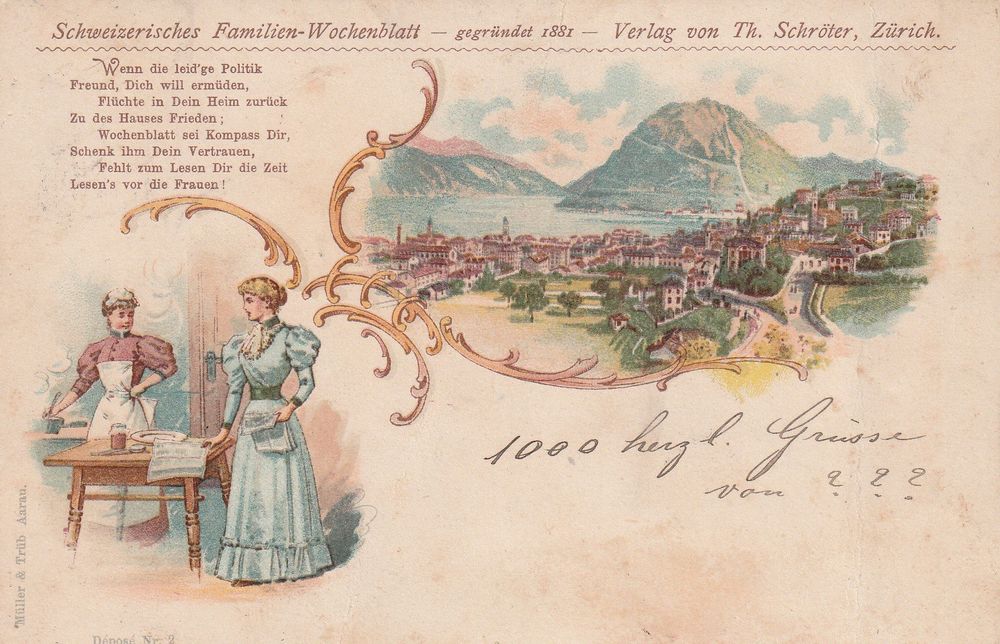 Schweizerisches Familien-Wochenblatt — gegründet 1881 — Verlag von Th. Schröter, Zürich.
Wenn die leid'ge Politik
Freund, Dich will ermüden,
Flüchte in Dein Heim zurück
Zu des Hauses Frieden;
Wochenblatt sei Kompass Dir,
Schenk ihm Dein Vertrauen,
Fehlt zum Lesen Dir die Zeit
Lesen's vor die Frauen!
1000 herzl. Grüsse
von ? ? ?
Müller & Trüb Aarau.
Déposé Nr. 2